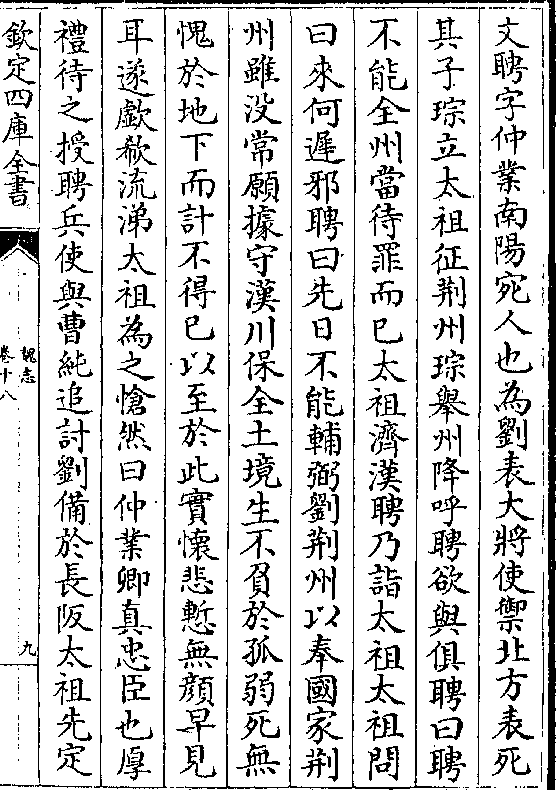 文聘字仲業南陽宛人也為劉表大將使禦北方表死
其子琮立太祖征荆州琮舉州降呼聘欲與俱聘曰聘
不能全州當待罪而已太祖濟漢聘乃詣太祖太祖問
曰來何遲邪聘曰先日不能輔弼劉荆州以奉國家荆
州雖没常願據守漢川保全土境生不負於孤弱死無
愧於地下而計不得已以至於此實懷悲慙無顔早見
耳遂歔欷流涕太祖為之愴然曰仲業卿真忠臣也厚
禮待之授聘兵使與曹純追討劉備於長阪太祖先定
欽定四庫全書
魏志
卷十八
九